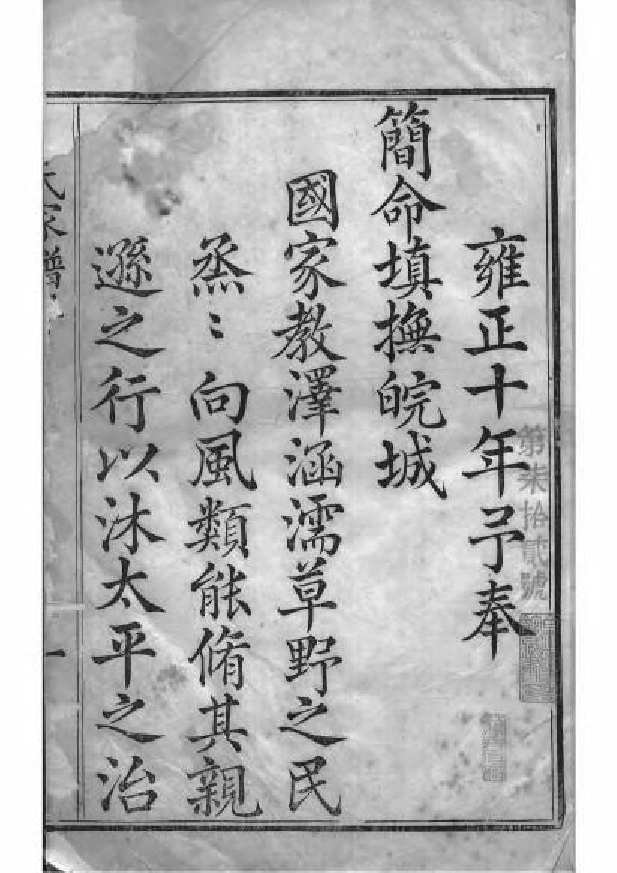 雍正十年予奉
簡命填撫皖城
國家教澤涵濡草野之民
烝〻向風類能脩其親
遜之行以沐太平之治
第柒拾貳號
氏家譜
一